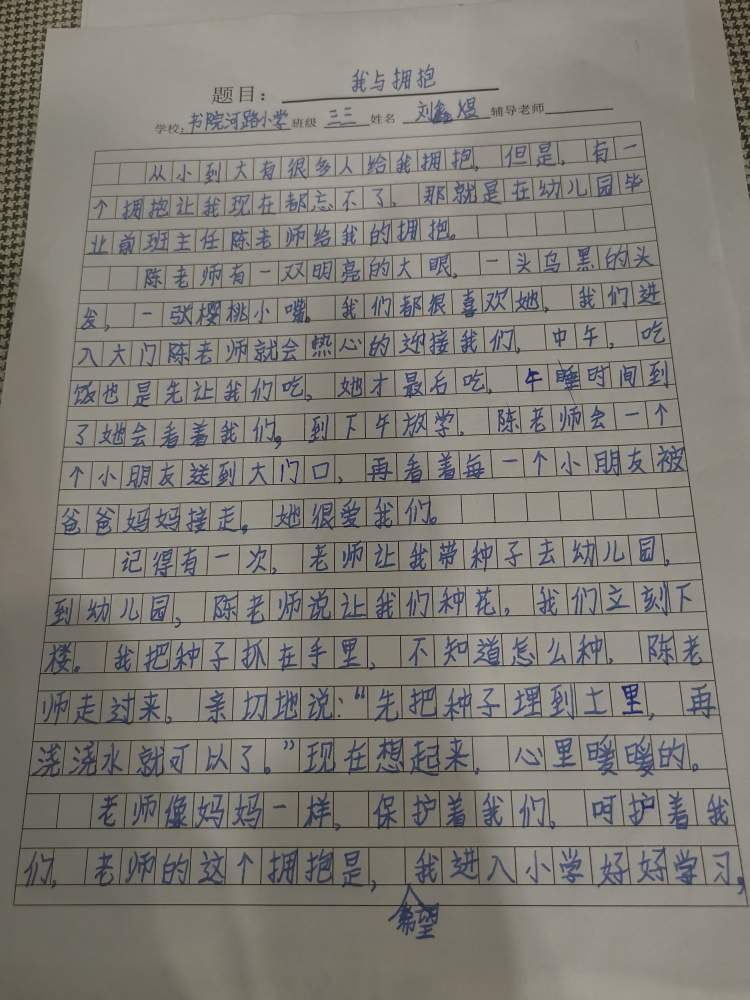 题目：我与拥抱
学校：书院河路小学班级 三三 姓名 刘鑫煜 辅导老师
从小到大有很多人给我拥抱，但是，有一
个拥抱让我现在都忘不了，那就是在幼儿园毕
业前班主任陈老师给我的拥抱。
陈老师有一双明亮的大眼，一头乌黑的头
发，一张樱桃小嘴。我们都很喜欢她，我们进
入大门陈老师就会热心的迎接我们，中午，吃
饭也是先让我们吃，她才最后吃，午睡时间到
了她会看着我们，到下午放学，陈老师会一个
个小朋友送到大门口，再看着每一个小朋友被
爸爸妈妈接走，她很爱我们。
记得有一次，老师让我带种子去幼儿园，
到幼儿园，陈老师说让我们种花，我们立刻下
楼。我把种子抓在手里，不知道怎么种，陈老
师走过来，亲切地说：“先把种子埋到土里，再
浇浇水就可以了。”现在想起来，心里暖暖的。
老师像妈妈一样，保护着我们，呵护着我
们，老师的这个拥抱是，我进入小学好好学习，
希望